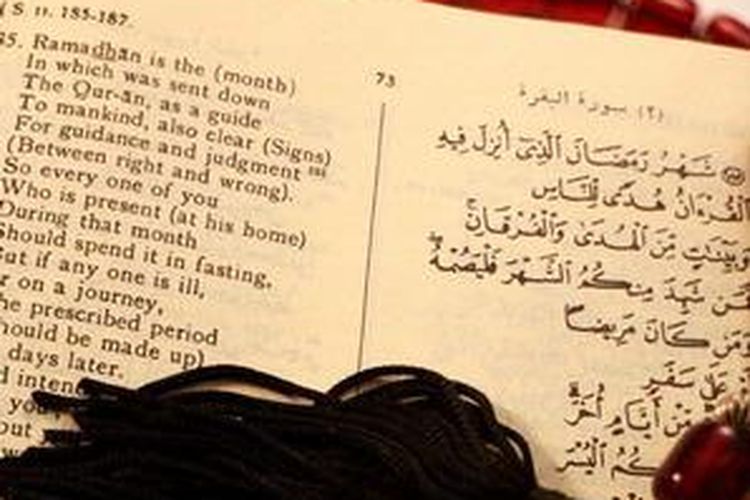 S 11. 185-187.
Ramadhān is the (month)
In which was sent down
The Qur-ān, as a guide
To mankind, also clear (Signs)
For guidance and judgment
(Between right and wrong).
So every one of you
Who is present (at his home)
During that month
Should spend it in fasting,
But if any one is ill,
on a journey,
prescribed period
be made up)
days later.
73
(٢) سورة البقرة
شَهْرُ رَمَضَانَ ٱلَّذِىٓ أُنزِلَ فِيهِ
ٱلْقُرْءَانُ هُدًى لِّلنَّاسِ
وَبَيِّنَٰتٍ مِّنَ ٱلْهُدَىٰ وَٱلْفُرْقَانِ
شَهِدَ مِنكُمُ ٱلشَّهْرَ فَلْيَصُمْهُ
وَمَن كَانَ مَرِيضًا
عَلَىٰ سَفَرٍ
مِّنْ أَيَّامٍ أُخَرَ
ٱلْيُسْرَ